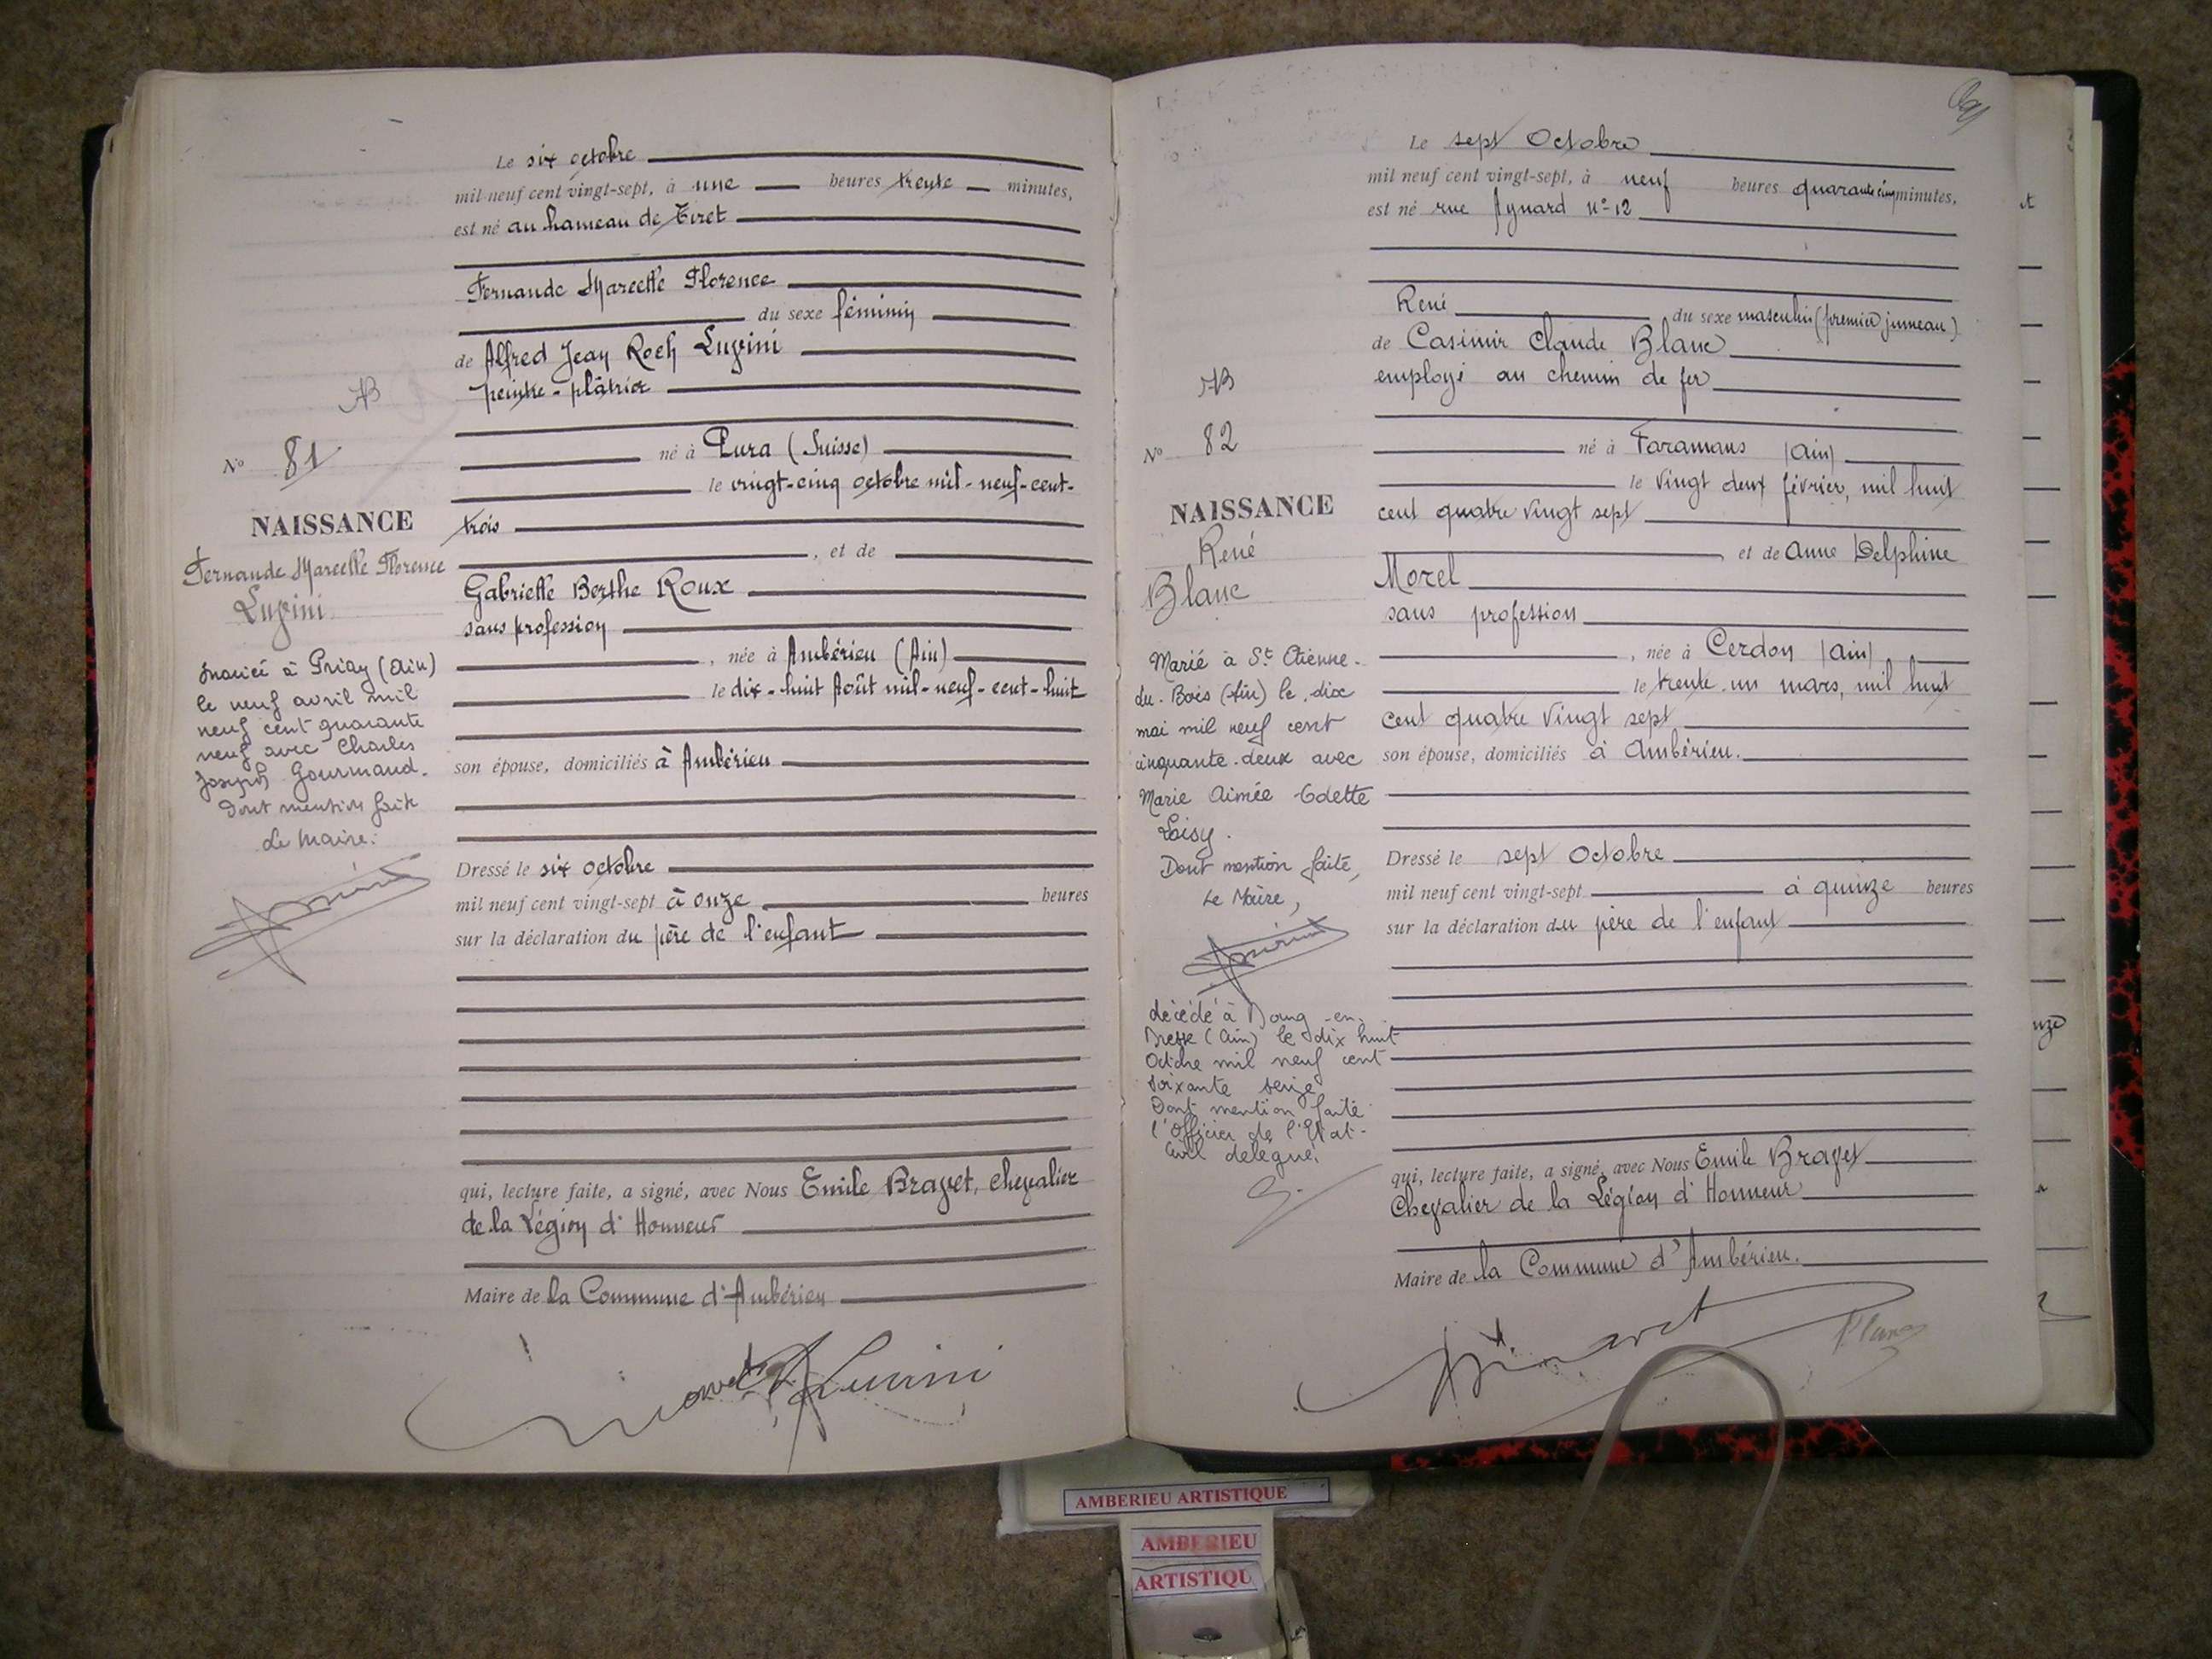 Le six octobre
mil neuf cent vingt-sept, à une heures trente minutes,
est né au hameau de Tiret
Fernande Marcelle Florence
du sexe féminin
de Alfred Jean Roch Luvini
peintre-plâtrier
né à Pura (Suisse)
le vingt-cinq octobre mil-neuf-cent-
trois
, et de
Gabrielle Berthe Roux
sans profession
, née à Ambérieu (Ain)
le dix-huit Août mil-neuf-cent-huit
son épouse, domiciliés à Ambérieu
Dressé le six octobre
mil neuf cent vingt-sept à onze heures
sur la déclaration du père de l'enfant
qui, lecture faite, a signé, avec Nous Emile Bravet, chevalier
de la Légion d'Honneur
Maire de la Commune d'Ambérieu
Luvini
AB
No 81
NAISSANCE
Fernande Marcelle Florence
Luvini
Mariée à Priay (Ain)
le neuf avril mil
neuf cent quarante
neuf avec Charles
Joseph Gourmand.
Dont mention faite
Le Maire:
Le sept Octobre
mil neuf cent vingt-sept, à neuf heures quarante cinq minutes,
est né rue Aynard no 12
René du sexe masculin (premier jumeau)
de Casimir Claude Blanc
employé au chemin de fer
né à Faramans (Ain)
le vingt deux février, mil huit
cent quatre vingt sept
et de Anne Delphine
Morel
sans profession
, née à Cerdon (Ain)
le trente-un mars, mil huit
cent quatre vingt sept
son épouse, domiciliés à Ambérieu.
Dressé le sept Octobre
mil neuf cent vingt-sept à quinze heures
sur la déclaration du père de l'enfant
qui, lecture faite, a signé, avec Nous Emile Bravet
Chevalier de la Légion d'Honneur
Maire de la Commune d'Ambérieu.
Bravet Blanc
AB
No 82
NAISSANCE
René
Blanc
Marié à St Etienne-
du-Bois (Ain) le dix
mai mil neuf cent
cinquante-deux avec
Marie Aimée Odette
Loisy.
Dont mention faite,
Le Maire,
décédé à Bourg-en-
Bresse (Ain) le dix huit
Octobre mil neuf cent
soixante seize
Dont mention faite
l'Officier de l'Etat-
Civil délégué,
AMBERIEU ARTISTIQUE
AMBERIEU
ARTISTIQU